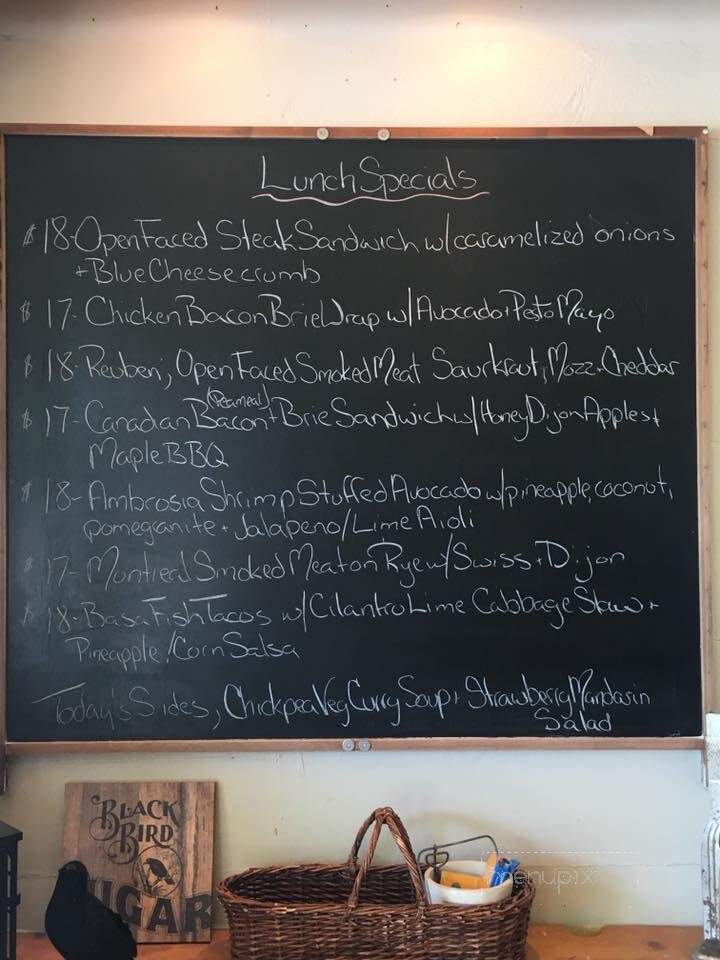 Lunch Specials
$18- Open Faced Steak Sandwich w/ caramelized onions
+ Blue Cheese crumb
$17- Chicken Bacon Brie Wrap w/ Avocado + Pesto Mayo
$18- Reuben; Open Faced Smoked Meat Saurkraut, Mozz + Cheddar
(Peameal)
$17- Canadian Bacon + Brie Sandwich w/ Honey Dijon Apples +
Maple BBQ
$18- Ambrosia Shrimp Stuffed Avocado w/ pineapple, coconut,
pomegranite + Jalapeno/Lime Aioli
$17- Montreal Smoked Meat on Rye w/ Swiss + Dijon
$18- Basa Fish Tacos w/ Cilantro Lime Cabbage Slaw +
Pineapple/Corn Salsa
Today's Sides, Chickpea Veg Curry Soup + Strawberry Mandarin
Salad
BLACK
BIRD
SUGAR
menupix